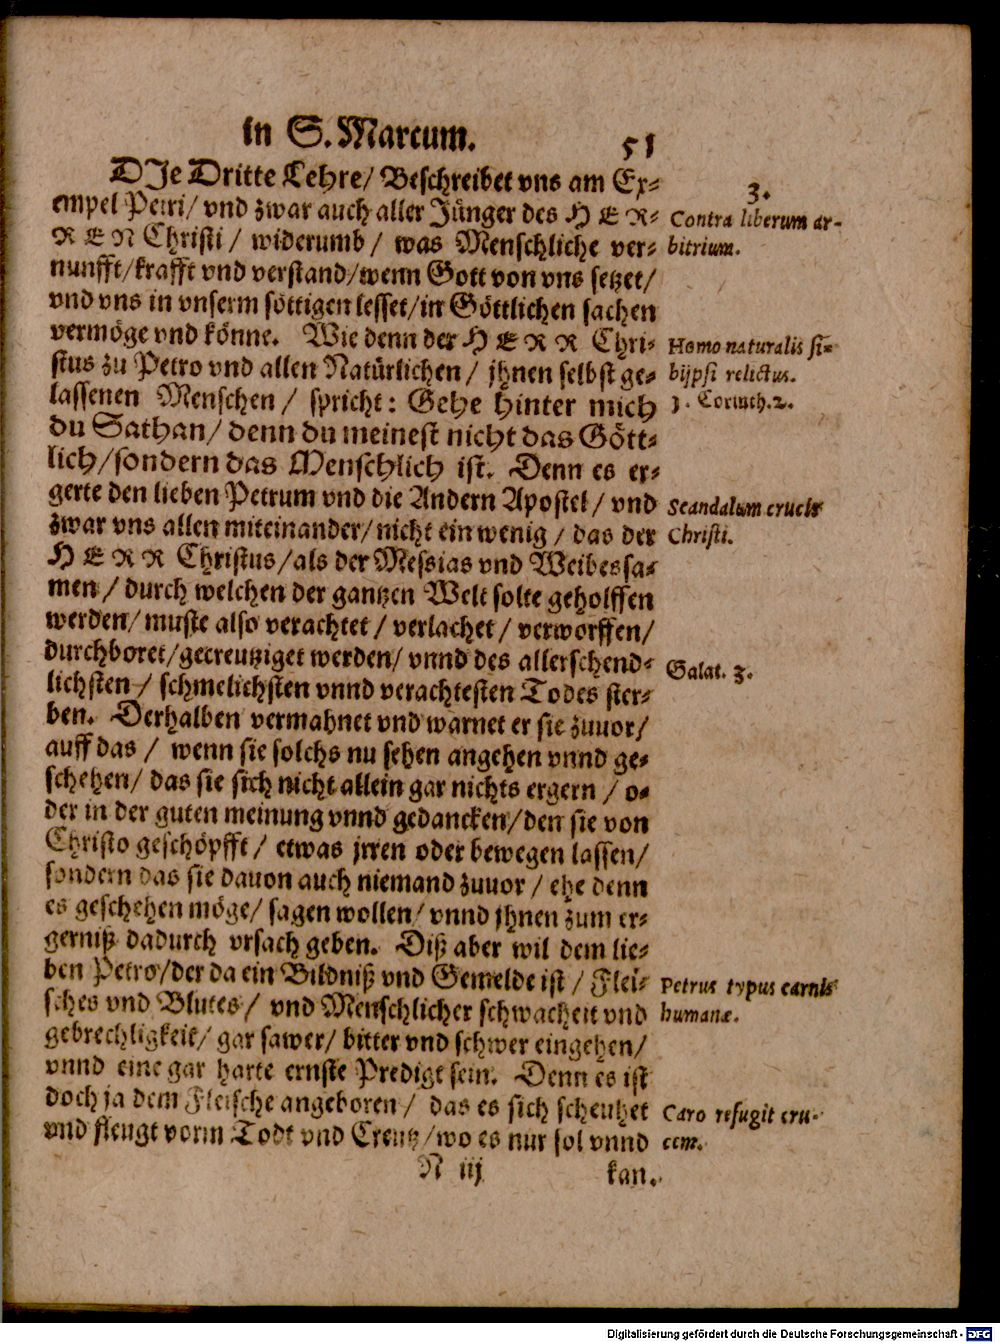 in S. Marcum. 51
DIe Dritte Lehre/ Beschreibet vns am Ex-
empel Petri/ vnd zwar auch aller Jünger des HER-
REN Christi / widerumb / was Menschliche ver-
nunfft/krafft vnd verstand/wenn Gott von vns setzet/
vnd vns in vnserm söttigen lesset/in Göttlichen sachen
vermöge vnd könne. Wie denn der HERR Chri-
stus zu Petro vnd allen Natürlichen / jhnen selbst ge-
lassenen Menschen / spricht: Gehe hinter mich
du Sathan/ denn du meinest nicht das Gött-
lich/sondern das Menschlich ist. Denn es er-
gerte den lieben Petrum vnd die Andern Apostel / vnd
zwar vns allen miteinander/ nicht ein wenig / das der
HERR Christus/als der Messias vnd Weibessa-
men / durch welchen der gantzen Welt solte geholffen
werden/ muste also verachtet / verlachet / verworffen/
durchboret/gecreutziget werden/ vnnd des allerschend-
lichsten / schmelichsten vnnd verachtesten Todes ster-
ben. Derhalben vermahnet vnd warnet er sie zuuor/
auff das / wenn sie solchs nu sehen angehen vnnd ge-
schehen/ das sie sich nicht allein gar nichts ergern / o-
der in der guten meinung vnnd gedancken/den sie von
Christo geschöpfft / etwas jrren oder bewegen lassen/
sondern das sie dauon auch niemand zuuor / ehe denn
es geschehen möge/ sagen wollen/ vnnd jhnen zum er-
gerniß dadurch vrsach geben. Diß aber wil dem lie-
ben Petro/der da ein Bildniß vnd Gemelde ist / Flei-
sches vnd Blutes / vnd Menschlicher schwacheit vnd
gebrechligkeit/ gar sawer/ bitter vnd schwer eingehen/
vnnd eine gar harte ernste Predigt sein. Denn es ist
doch ja dem Fleische angeboren / das es sich scheuhet
vnd fleugt vorm Todt vnd Creutz/wo es nur sol vnnd
N iij kan.
3.
Contra liberum ar-
bitrium.
Homo naturalis si-
bijpsi relictus.
1. Corinth.2.
Scandalum crucis
Christi.
Galat. 3.
Petrus typus carnis
humanæ.
Caro refugit cru-
cem.
Digitalisierung gefördert durch die Deutsche Forschungsgemeinschaft - DFG